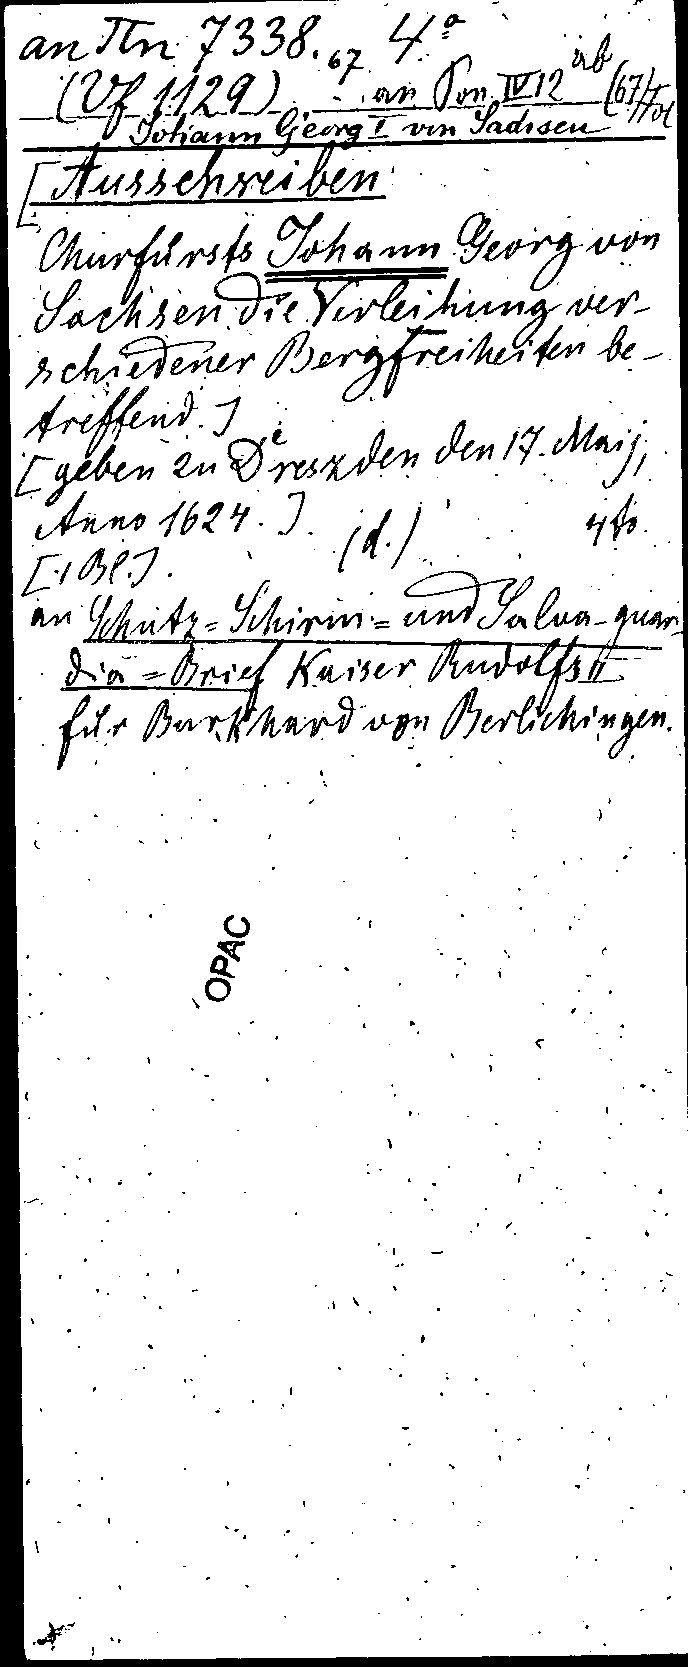 an Tln 7338. 67 4º
(Vf 1129) an Pon IV 12 ab (67) Fol
Johann Georg I von Sachsen
[Ausschreiben
Churfürsts Johann Georg von
Sachsen die Verleihung ver-
schiedener Bergfreiheiten be-
treffend.]
[geben zu Dreszden den 17. Maij,
Anno 1624.] (d.) 4to.
[1 Bl.].
an Schutz=Schirm=und Salva-guar-
dia=Brief Kaiser Rudolfs II
für Burkhard von Berlichingen.
OPAC